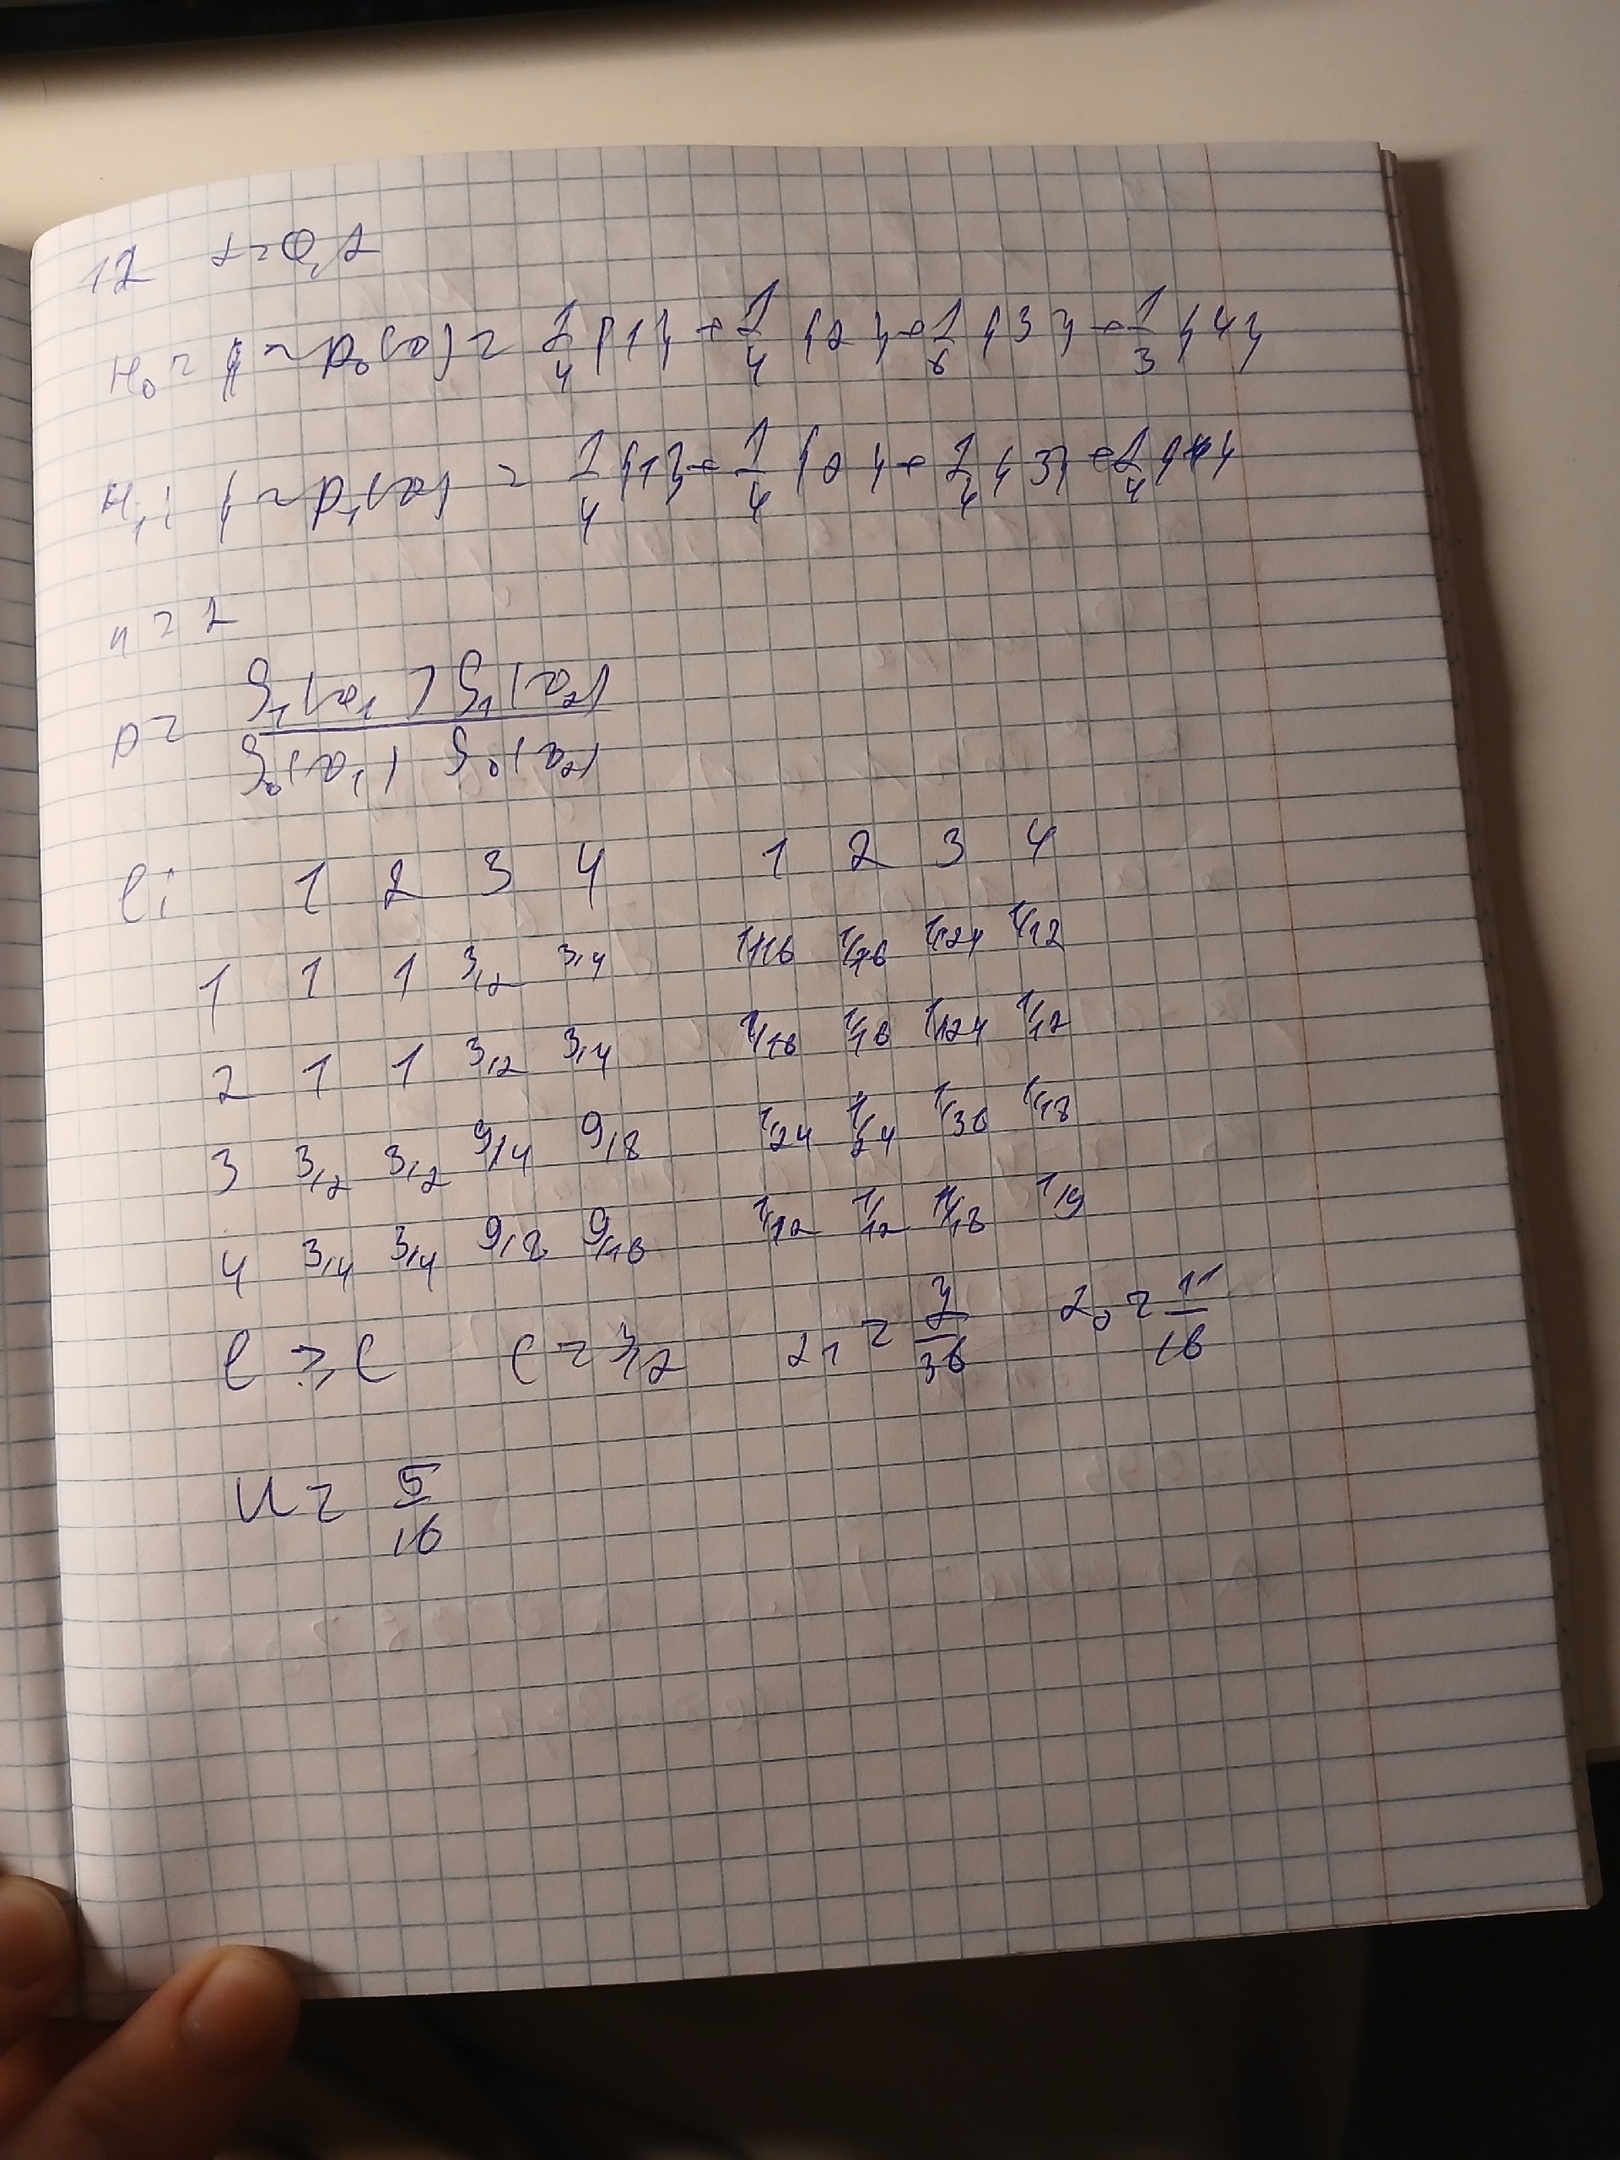 12 α = 0,2
H₀ = ξ ~ p₀(x) = 1/4 {1} + 1/4 {2} + 1/6 {3} + 1/3 {4}
H₁: ξ ~ p₁(x) = 1/4 {1} + 1/4 {2} + 1/4 {3} + 1/4 {4}
n = 2
ρ₁(x₁) ρ₁(x₂)
ρ₀(x₁) ρ₀(x₂)
l: 1 2 3 4 1 2 3 4
1 1 1 3/2 3/4 1/16 1/16 1/24 1/12
2 1 1 3/2 3/4 1/16 1/16 1/24 1/12
3 3/2 3/2 9/4 9/8 1/24 1/24 1/36 1/18
4 3/4 3/4 9/8 9/16 1/12 1/12 1/18 1/9
l ≥ C C = 3/2 α₁ = 7/36 α₂ = 11/16
W = 5/16